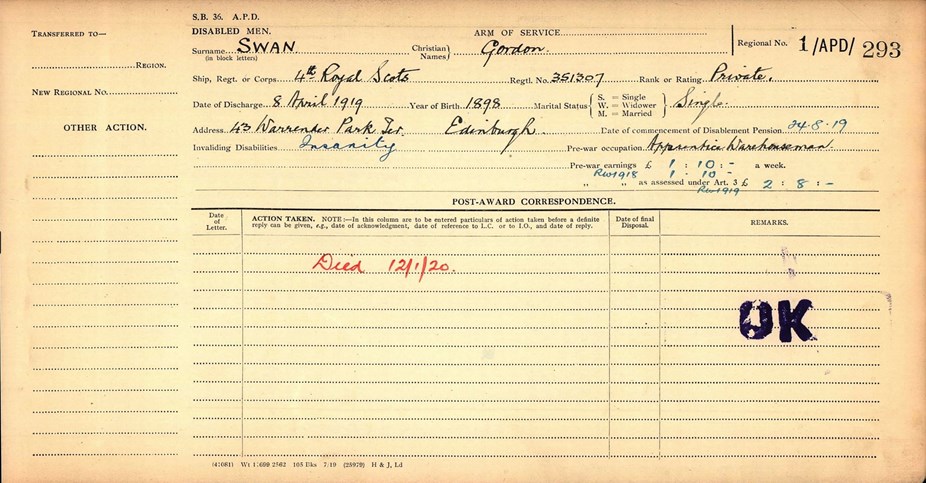 S.B. 36. A.P.D.
TRANSFERRED TO—
DISABLED MEN.
ARM OF SERVICE
Surname SWAN
(in block letters)
Christian Names} Gordon.
Regional No. 1/APD/ 293
REGION.
Ship, Regt. or Corps. 4th Royal Scots
Regtl. No. 351307
Rank or Rating. Private.
NEW REGIONAL No.
Date of Discharge 8 April 1919
Year of Birth 1898
Marital Status { S. = Single W. = Widower M. = Married } Single.
OTHER ACTION.
Address. 43 Warrender Park Ter. Edinburgh.
Date of commencement of Disablement Pension. 24.8.19
Invaliding Disabilities Insanity
Pre-war occupation. Apprentice Warehouseman.
Pre-war earnings £ 1 : 10 : - a week.
RW1918 1 . 10 -
„ „ as assessed under Art. 3 £ 2 : 8 : -
RW1919
POST-AWARD CORRESPONDENCE.
Date of Letter.
ACTION TAKEN. NOTE:—In this column are to be entered particulars of action taken before a definite
reply can be given, e.g., date of acknowledgment, date of reference to L.C. or to I.O., and date of reply.
Date of final Disposal.
REMARKS.
Died 12/1/20.
OK
Wt 2562 105 Bks 7/19 (25979) H & J, Ld